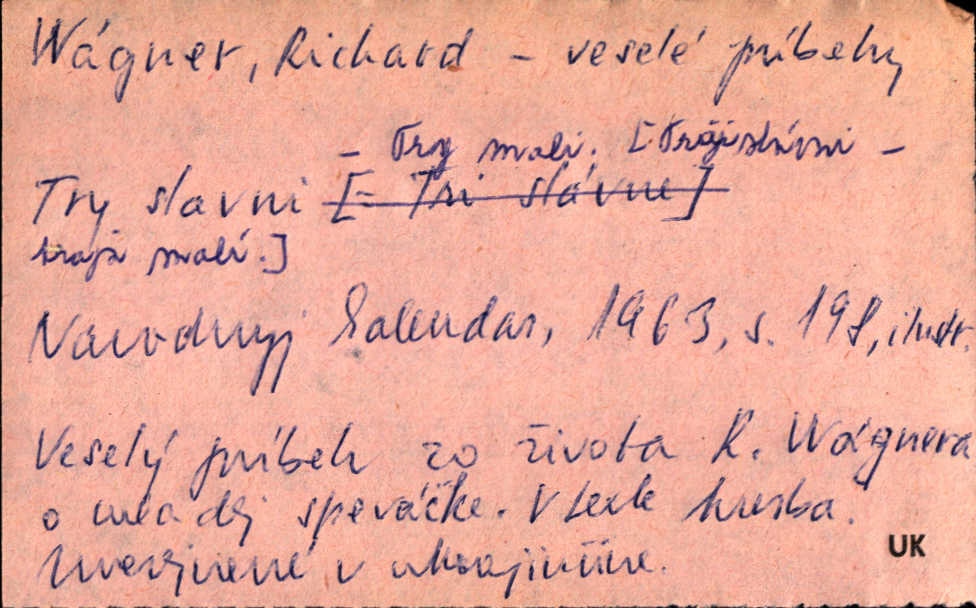 Wágner, Richard – veselé príbehy
– Try mali. [Traja slávni –
Try slavni [= Tri slávne]
traja malí.]
Narodnyj kalendar, 1963, s. 198, ilustr.
Veselý príbeh zo života R. Wágnera
o mladej speváčke. V texte kresba.
Uverejnené v ukrajinčine.
UK